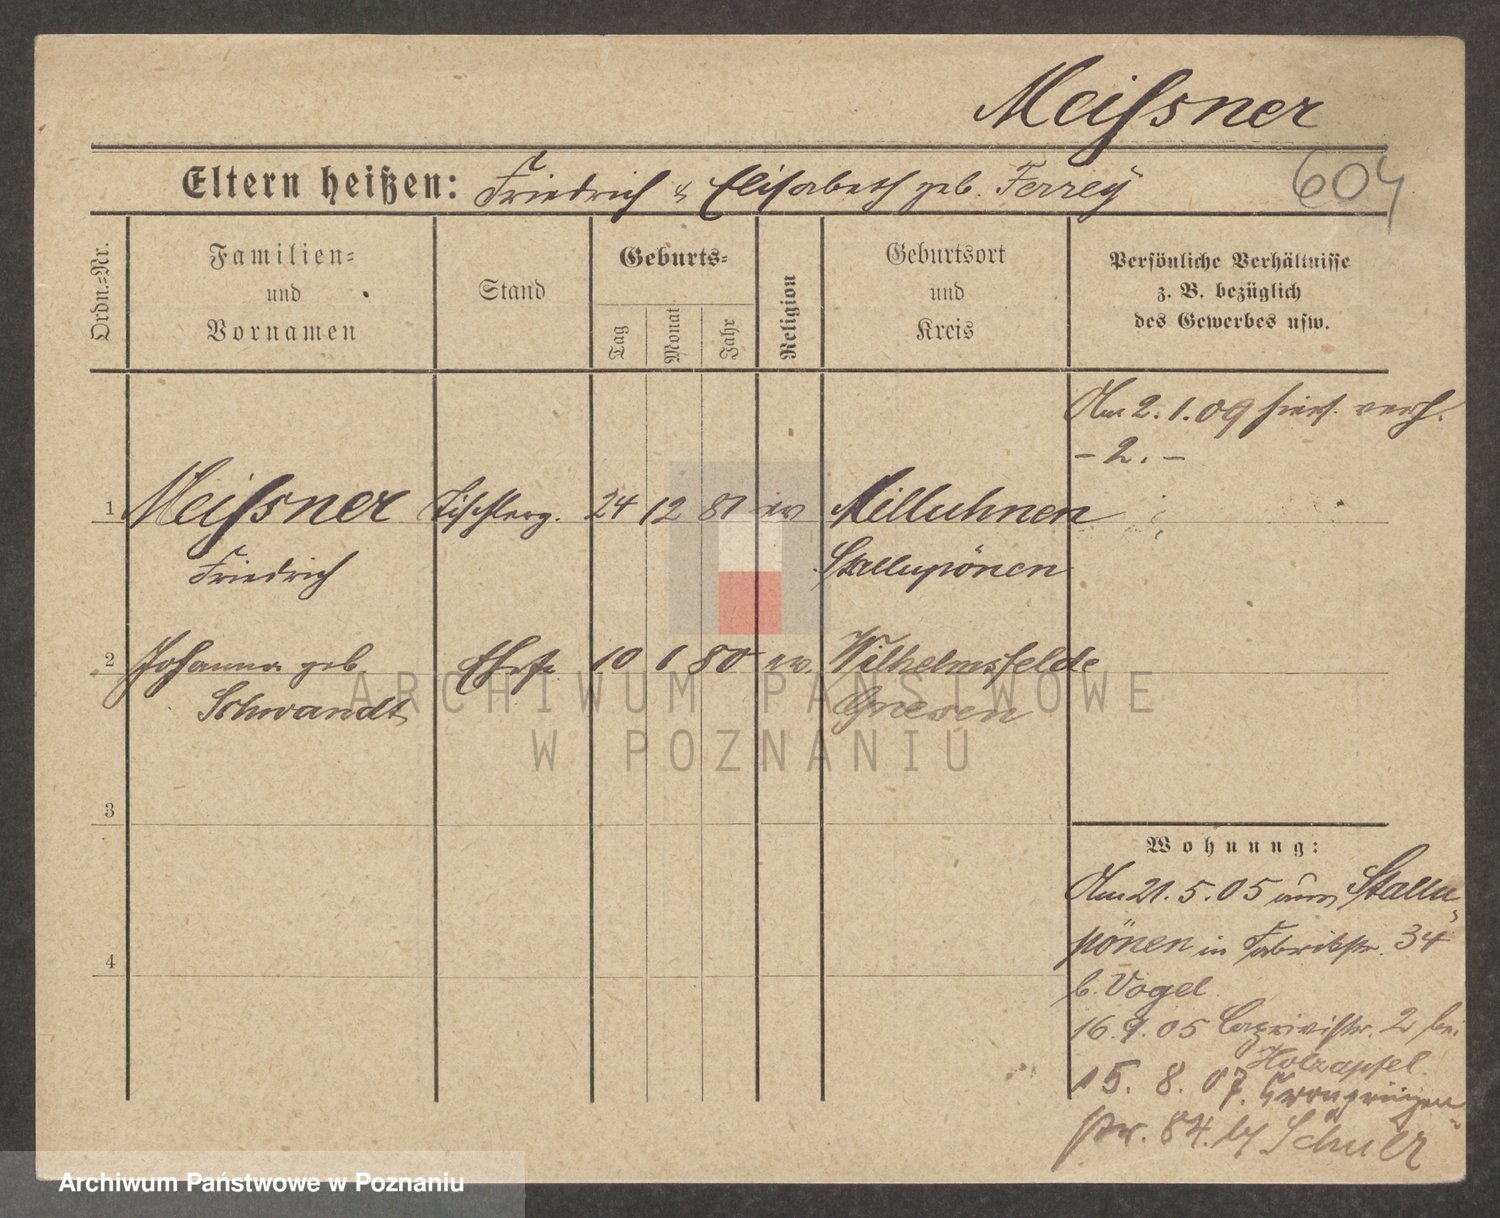 Meißner
604
Eltern heißen: Friedrich & Elisabeth geb. Ferrey
Ordn.-Nr.
Familien-
und
Vornamen
Stand
Geburts-
Tag
Monat
Jahr
Religion
Geburtsort
und
Kreis
Persönliche Verhältnisse
z. B. bezüglich
des Gewerbes usw.
Am 2.1.09 hier verh.
- 2. -
1 Meißner Tischlerg. 24 12 81 ev Milluhnen
Friedrich Stallupönen
2 Johanna geb. Ehefr. 10 1 80 ev. Wilhelmsfelde
Schwandt Gnesen
3
4
Wohnung:
Am 21.5.05 aus Stallu-
pönen in Fabrikstr. 34
b. Vogel
16.9.05 Caprivistr. 2 bei
Holzapfel.
15. 8. 07. Kronprinzen-
str. 84. bei Schulz
ARCHIWUM PAŃSTWOWE
W POZNANIU
Archiwum Państwowe w Poznaniu